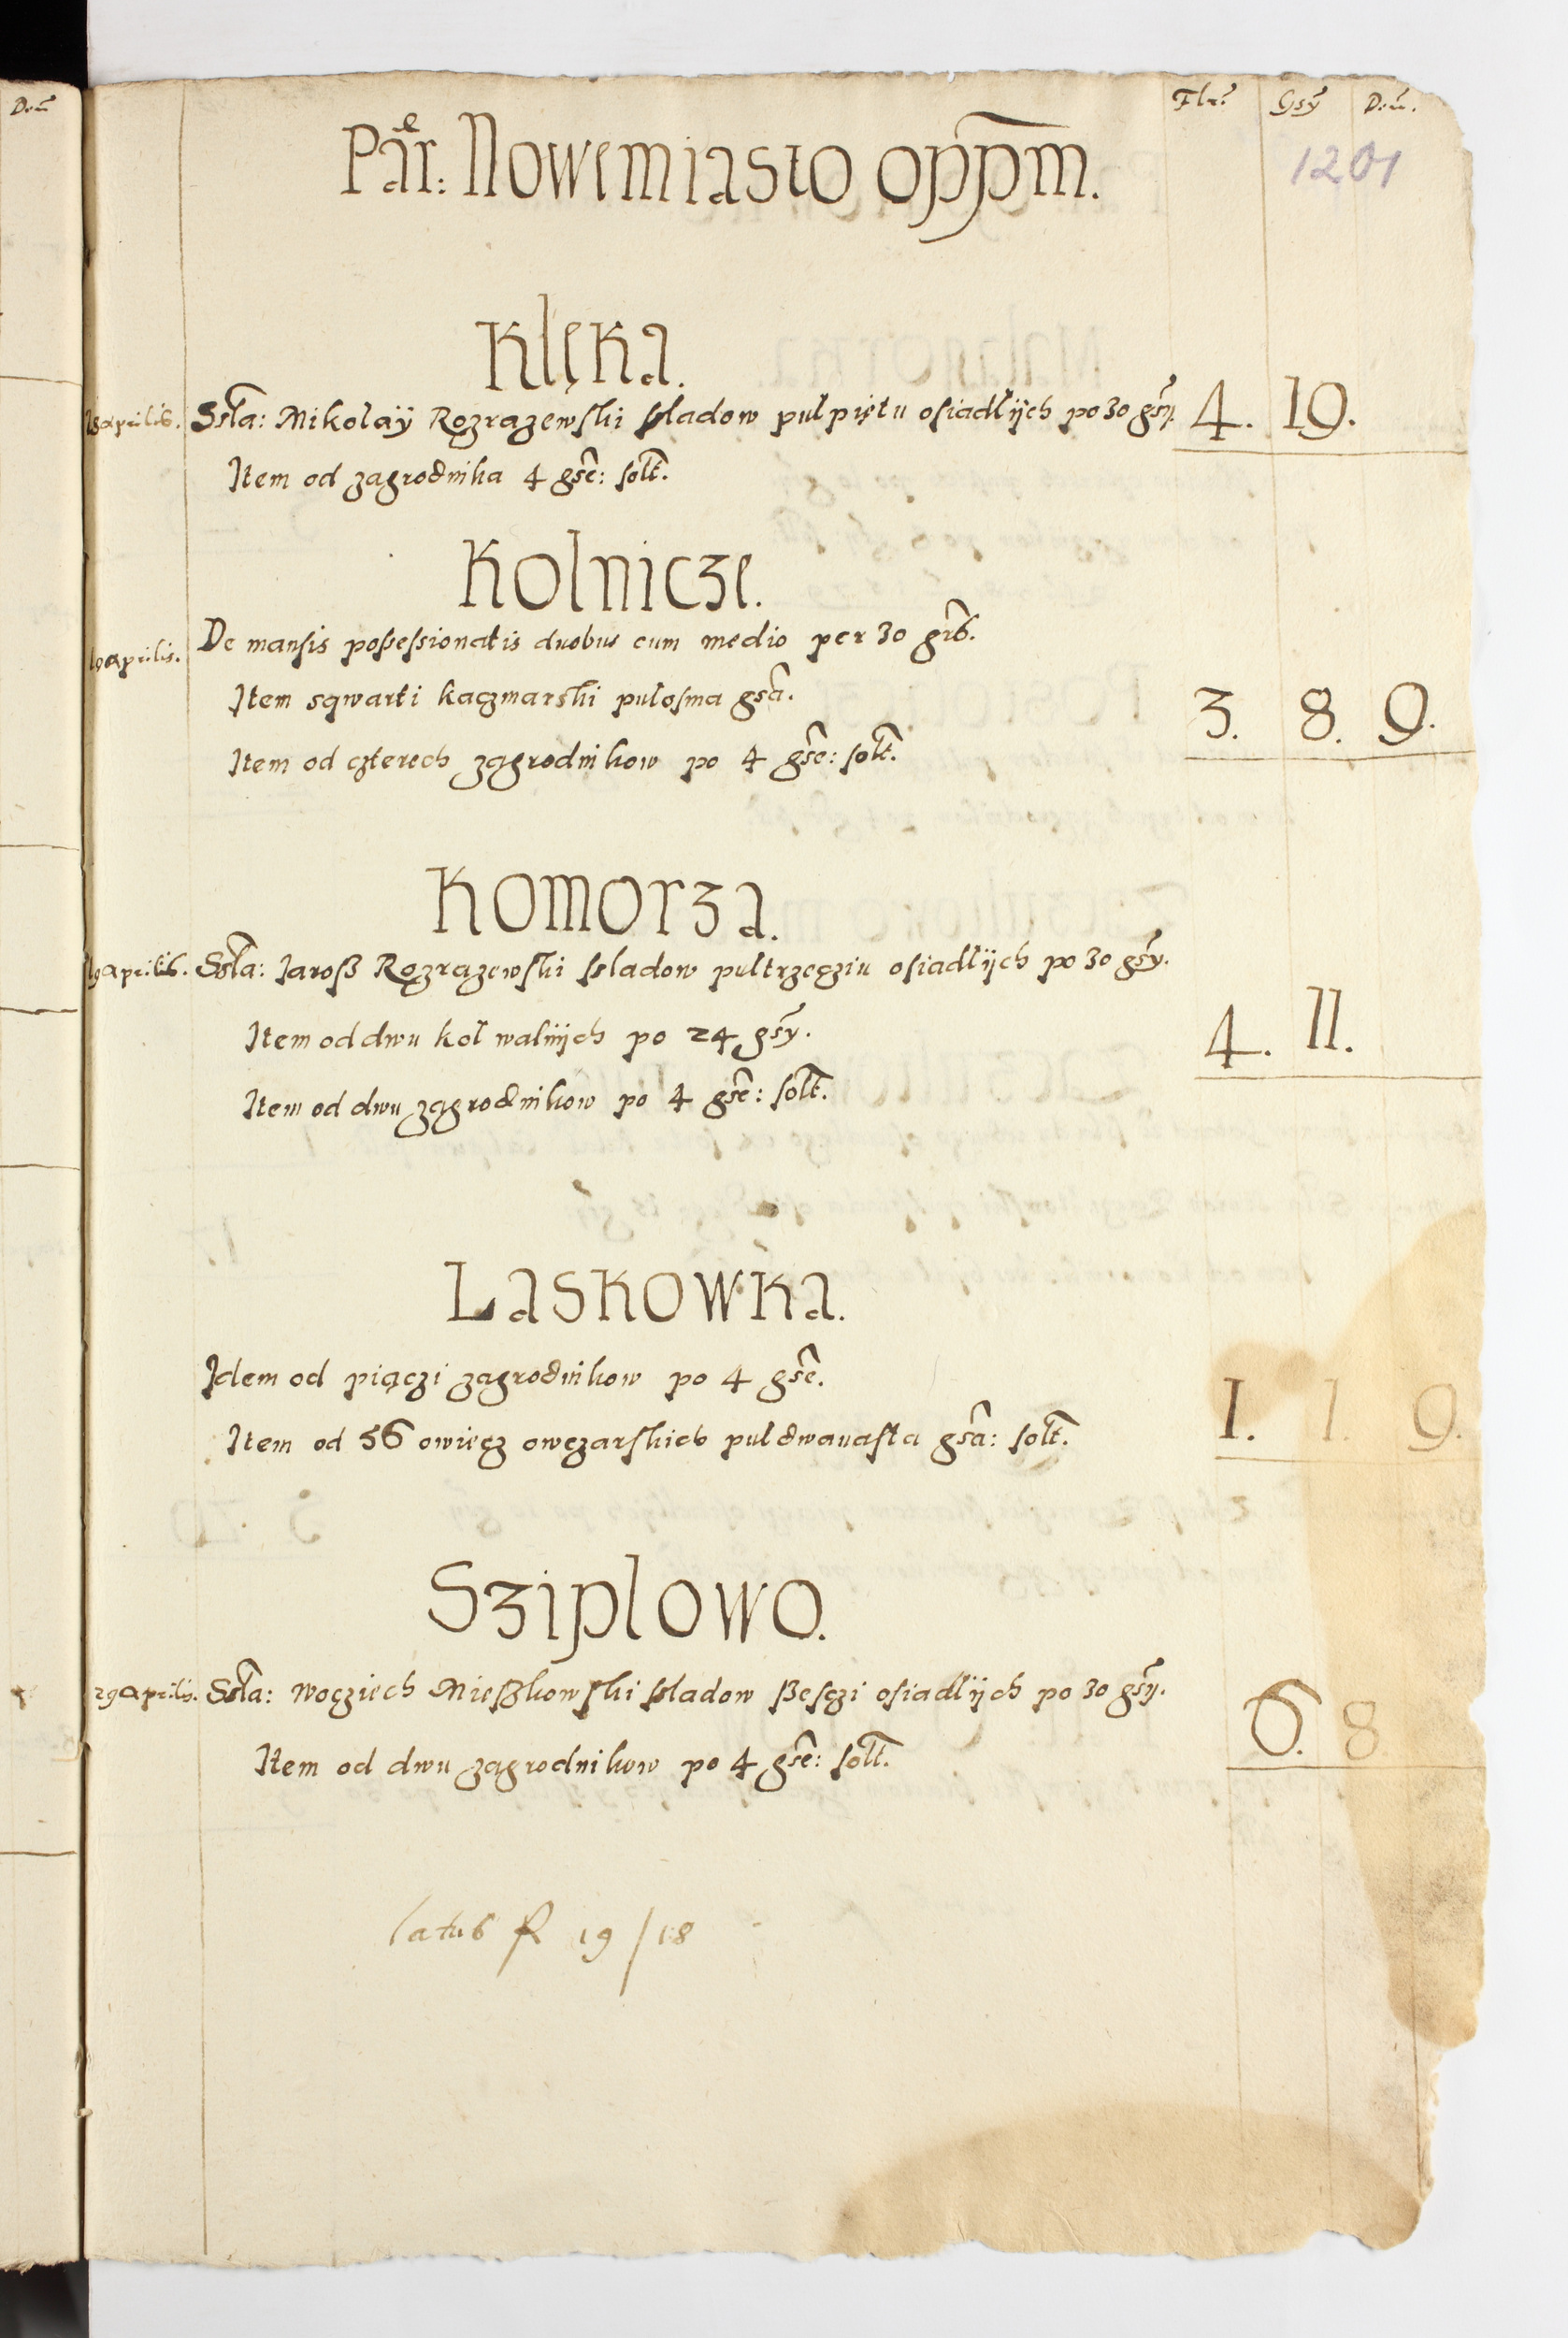 Den̄
Flr̃. Gsỹ Den̄.
1201
Par: Nowemiasto opp̃m.
Klęka.
Ssła: Mikołaÿ Rozrazewski s sladow pułpiętu osiadłÿch po 30 gsỹ. 4. 19.
Item od zagrodnika 4 gsẽ: solt̃.
Kolnicze.
19 aprilis. De mansis possessionatis duobus cum medio per 30 grs̃.
Item sqwarti kaczmarski pułosma gsã. 3. 8. 9.
Item od czterech zagrodnikow po 4 gsẽ: solt̃.
Komorza.
19 aprilis. Ssła: Jarosz Rozrazewski s sladow pułtrzecziu osiadłÿch po 30 gsỹ.
Item od dwu koł walnÿch po 24 gsỹ. 4. 11.
Item od dwu zagrodnikow po 4 gsẽ: solt̃.
Laskowka.
Idem od piączi zagrodnikow po 4 gsẽ.
Item od 56 owiecz owczarskich pułdwanasta gsã: solt̃. 1. 1. 9.
Sziplowo.
29 aprilis. Ssła: Wocziech Mieszkowski s sladow szesczi osiadłÿch po 30 gsỹ. 6. 8
Item od dwu zagrodnikow po 4 gsẽ: solt̃.
latus fl 19/18